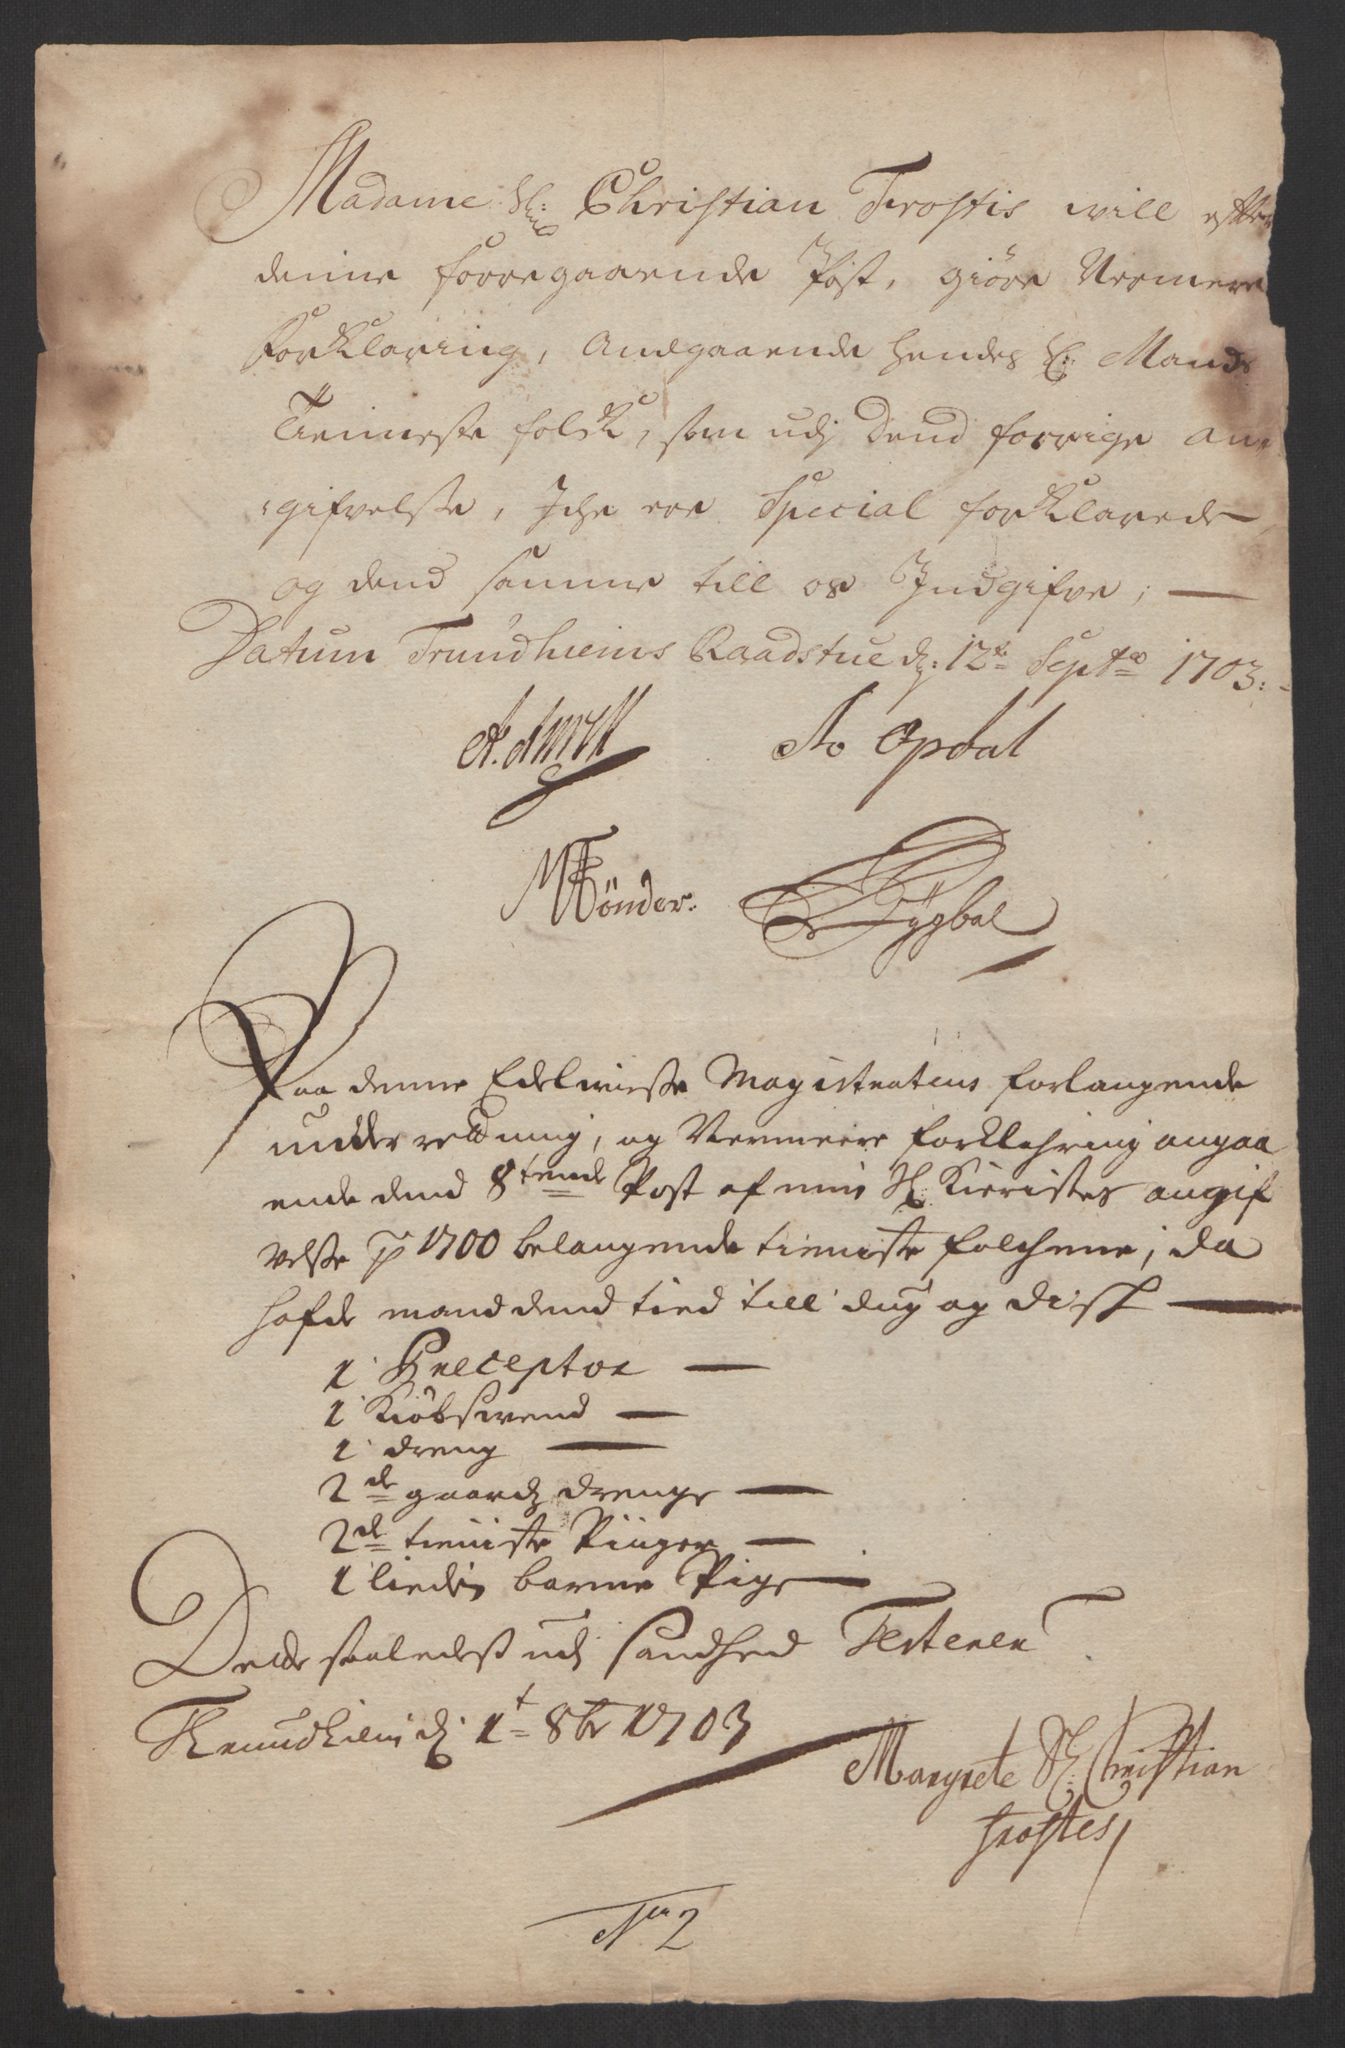 Madame Sl: Christian Trostis will effter
denne forregaaende Post, giöre Nermere
forklaring, Andgaaende hendes Sl: Mands
Tienneste folck, som udj dend forrige an
gifvelse, Iche ere Special forklarede
og dend samme till os Indgifve;
Datum Trundhiems Raadstue d: 12te Septbr 1703:
So Opdal
Tönder.
Paa denne Edelwiese Magistratens forlangende
underretning, og Nermeere forklehring angaa
ende dend 8tende Post af min Sl: Kieristes angif
velse p 1700 belangende tieniste folchene, da
hafde mand dend tied till dug og disk
1 Preceptor
1 Kiöbswend
1 dreng
2de gaardz drenge
2de tieniste Piiger
1 lieden barne Pige
Dette saaledeß udj sandhed Testerer
Trundhiem d: 1t 8br 1703
Margrete Sl: Christian
trostes
No 2